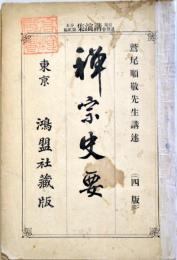 鷲尾順敬先生講述
(四版)
禅宗史要
東京 鴻盟社蔵版